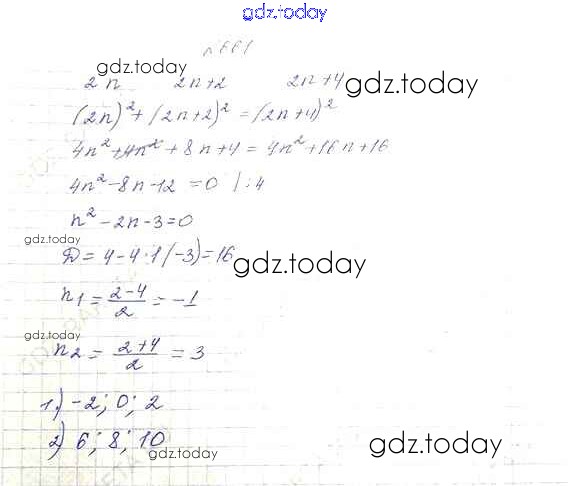 gdz.today
№661
gdz.today
2n 2n+2 2n+4 gdz.today
(2n)²+(2n+2)²=(2n+4)²
4n²+4n²+8n+4=4n²+16n+16
4n²-8n-12=0 /:4
n²-2n-3=0
gdz.today
D=4-4·1(-3)=16
gdz.today
n1=(2-4)/2=-1
gdz.today
n2=(2+4)/2=3
1) -2; 0; 2
2) 6; 8; 10
gdz.today gdz.today